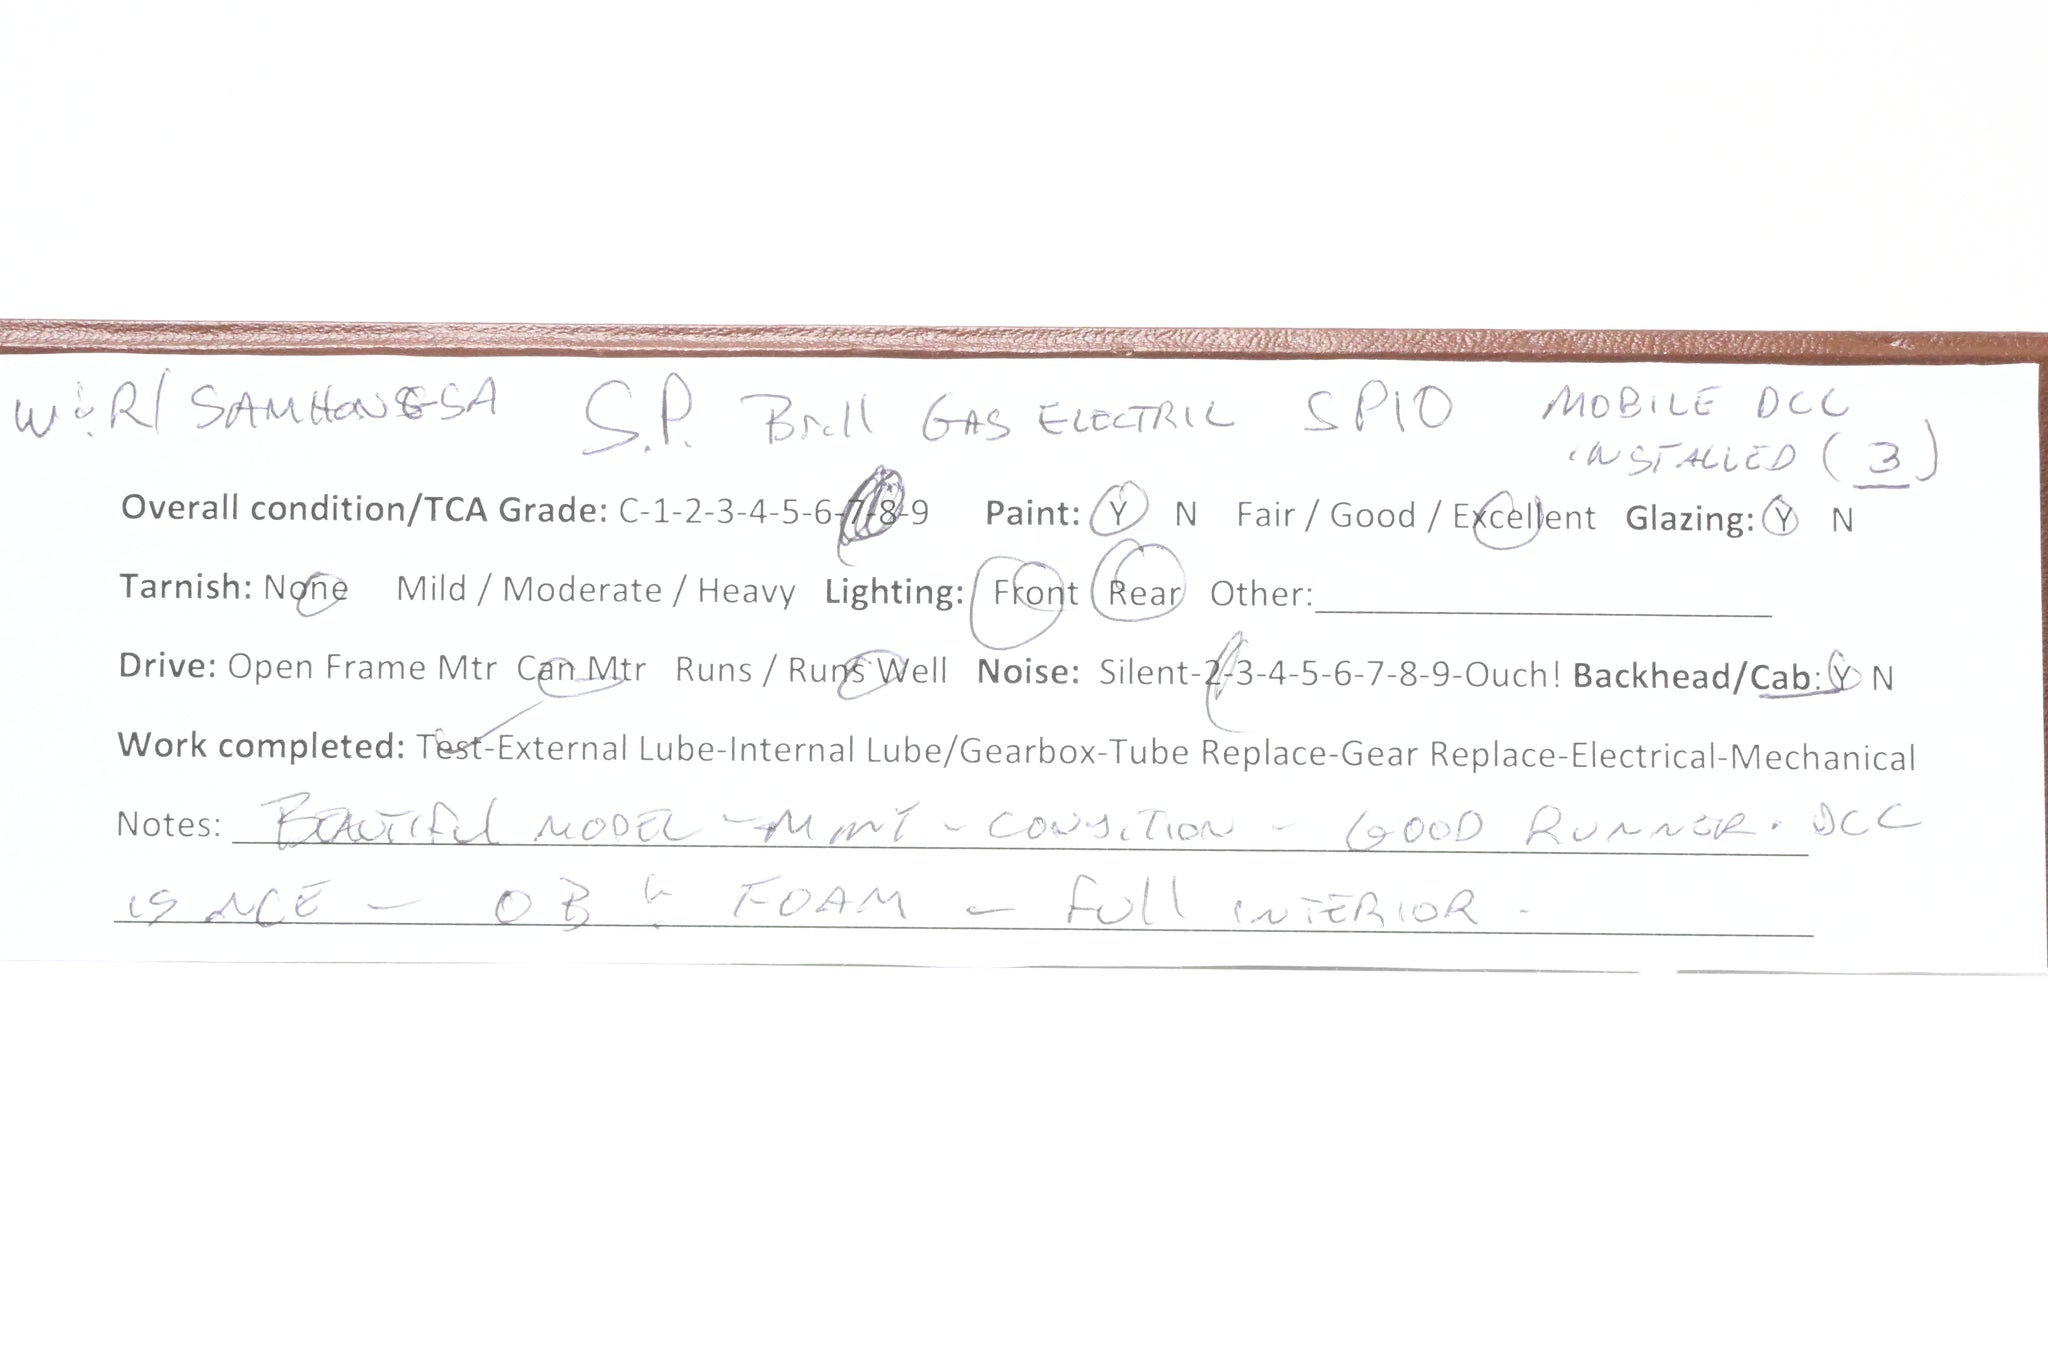 W&R/ SAMHONGSA S.P. Brill GAS ELECTRIC SP10 MOBILE DCC
INSTALLED (3)
Overall condition/TCA Grade: C-1-2-3-4-5-6-7-8-9 Paint: Y N Fair / Good / Excellent Glazing: Y N
Tarnish: None Mild / Moderate / Heavy Lighting: Front Rear Other:
Drive: Open Frame Mtr Can Mtr Runs / Runs Well Noise: Silent-2-3-4-5-6-7-8-9-Ouch! Backhead/Cab: Y N
Work completed: Test-External Lube-Internal Lube/Gearbox-Tube Replace-Gear Replace-Electrical-Mechanical
Notes: BEAUTIFUL MODEL - MINT - CONDITION - GOOD RUNNER. DCC
IS NCE - OB & FOAM - Full INTERIOR -